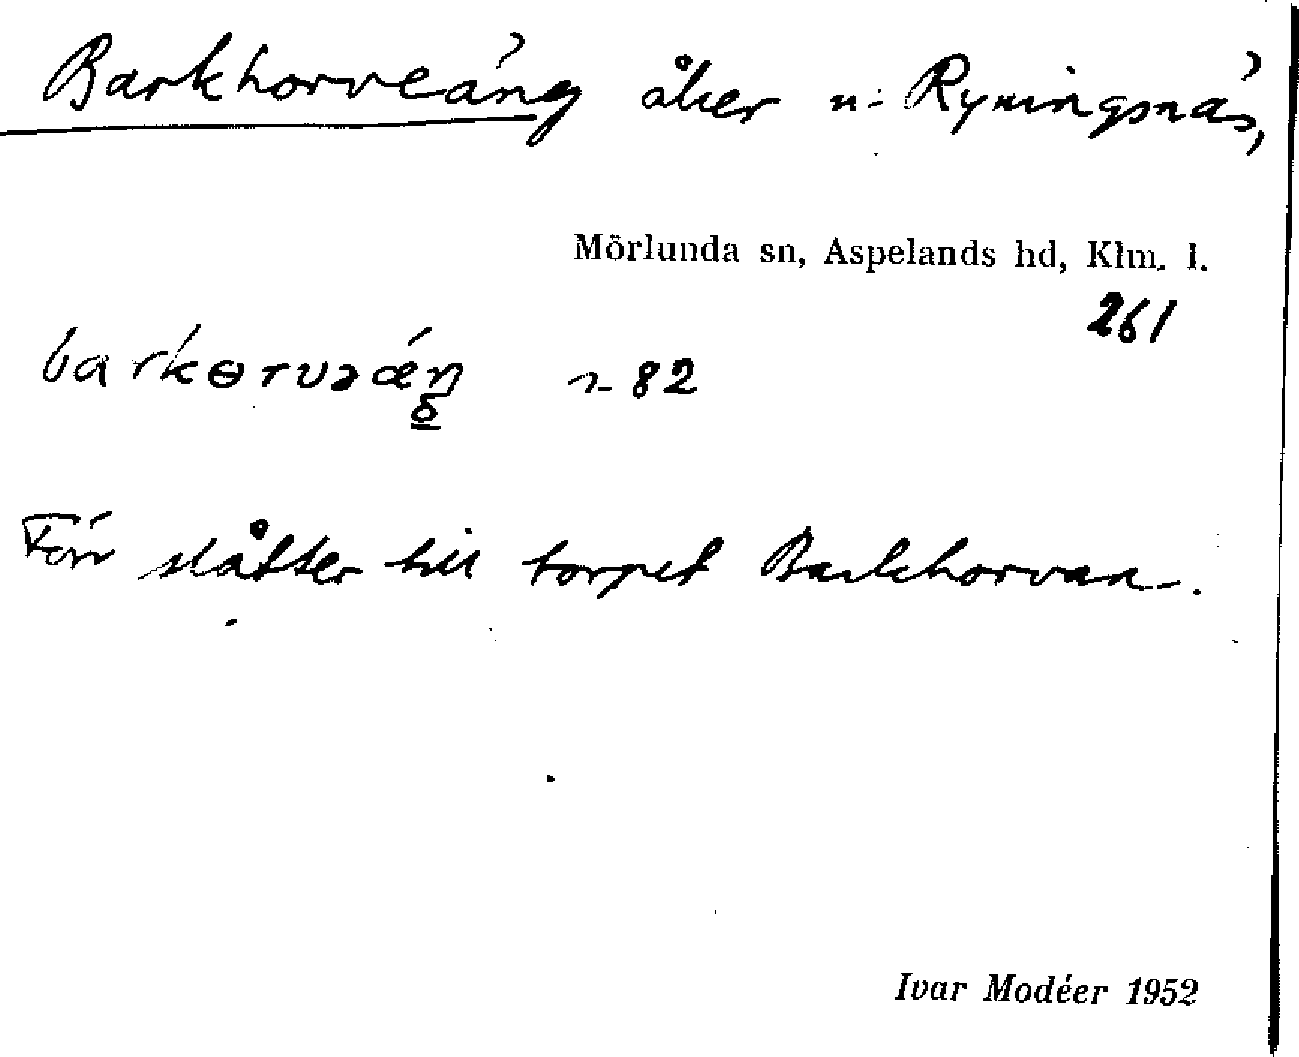 Barkhorveäng åker n. Ryningsnäs,
Mörlunda sn, Aspelands hd, Klm. l.
261
barkɵrvəǽŋ 82
Förr slåtter till torpet Barkhorvan.
Ivar Modéer 1952